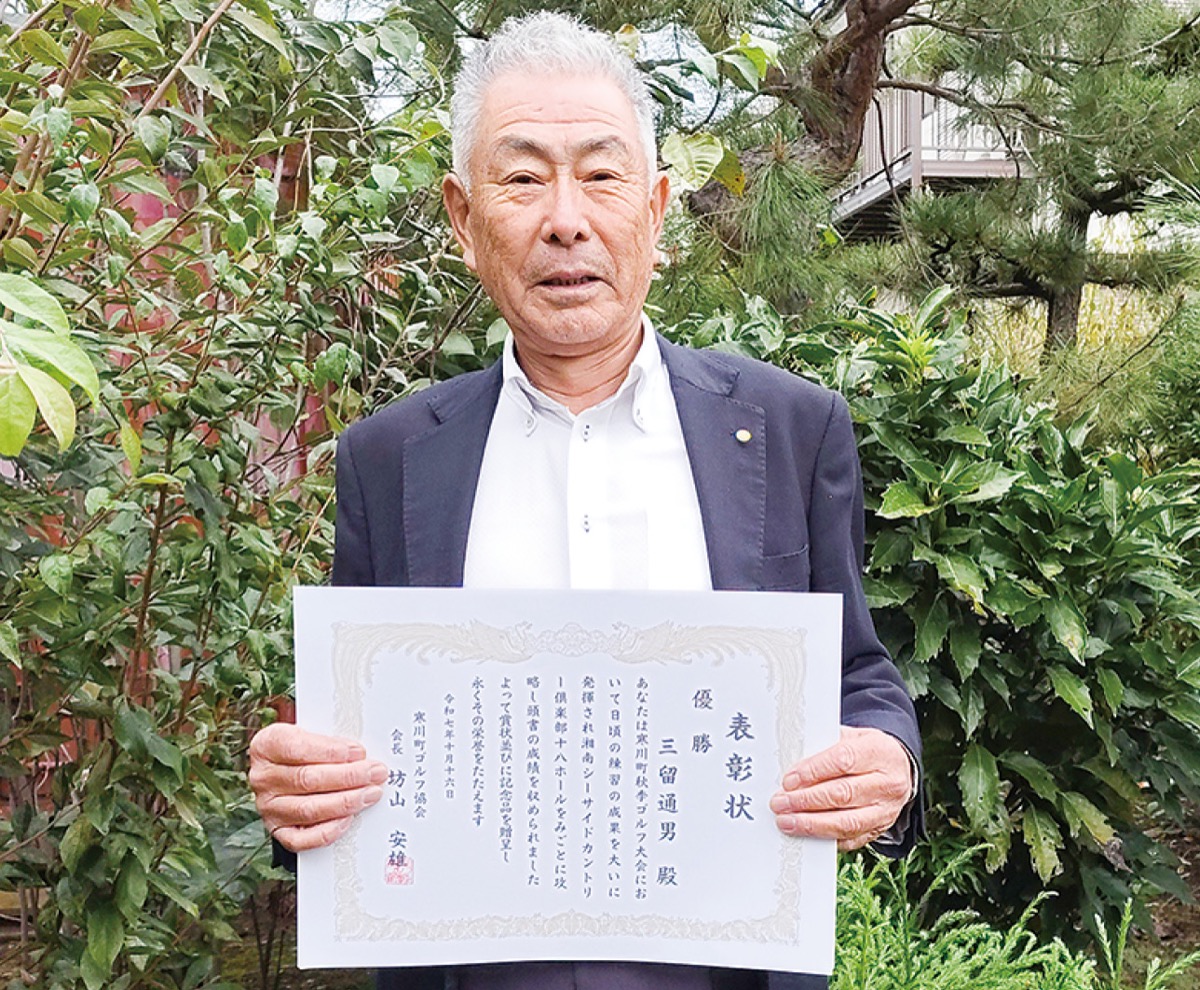 表彰状
優勝
三留通男 殿
あなたは寒川町秋季ゴルフ大会にお
いて日頃の練習の成果を大いに
発揮され湘南シーサイドカントリ
ー倶楽部十八ホールをみごとに攻
略し頭書の成績を収められました
よって賞状並びに記念品を贈呈し
永くその栄誉をたたえます
令和七年十月十六日
寒川町ゴルフ協会
会長 坊山 安雄